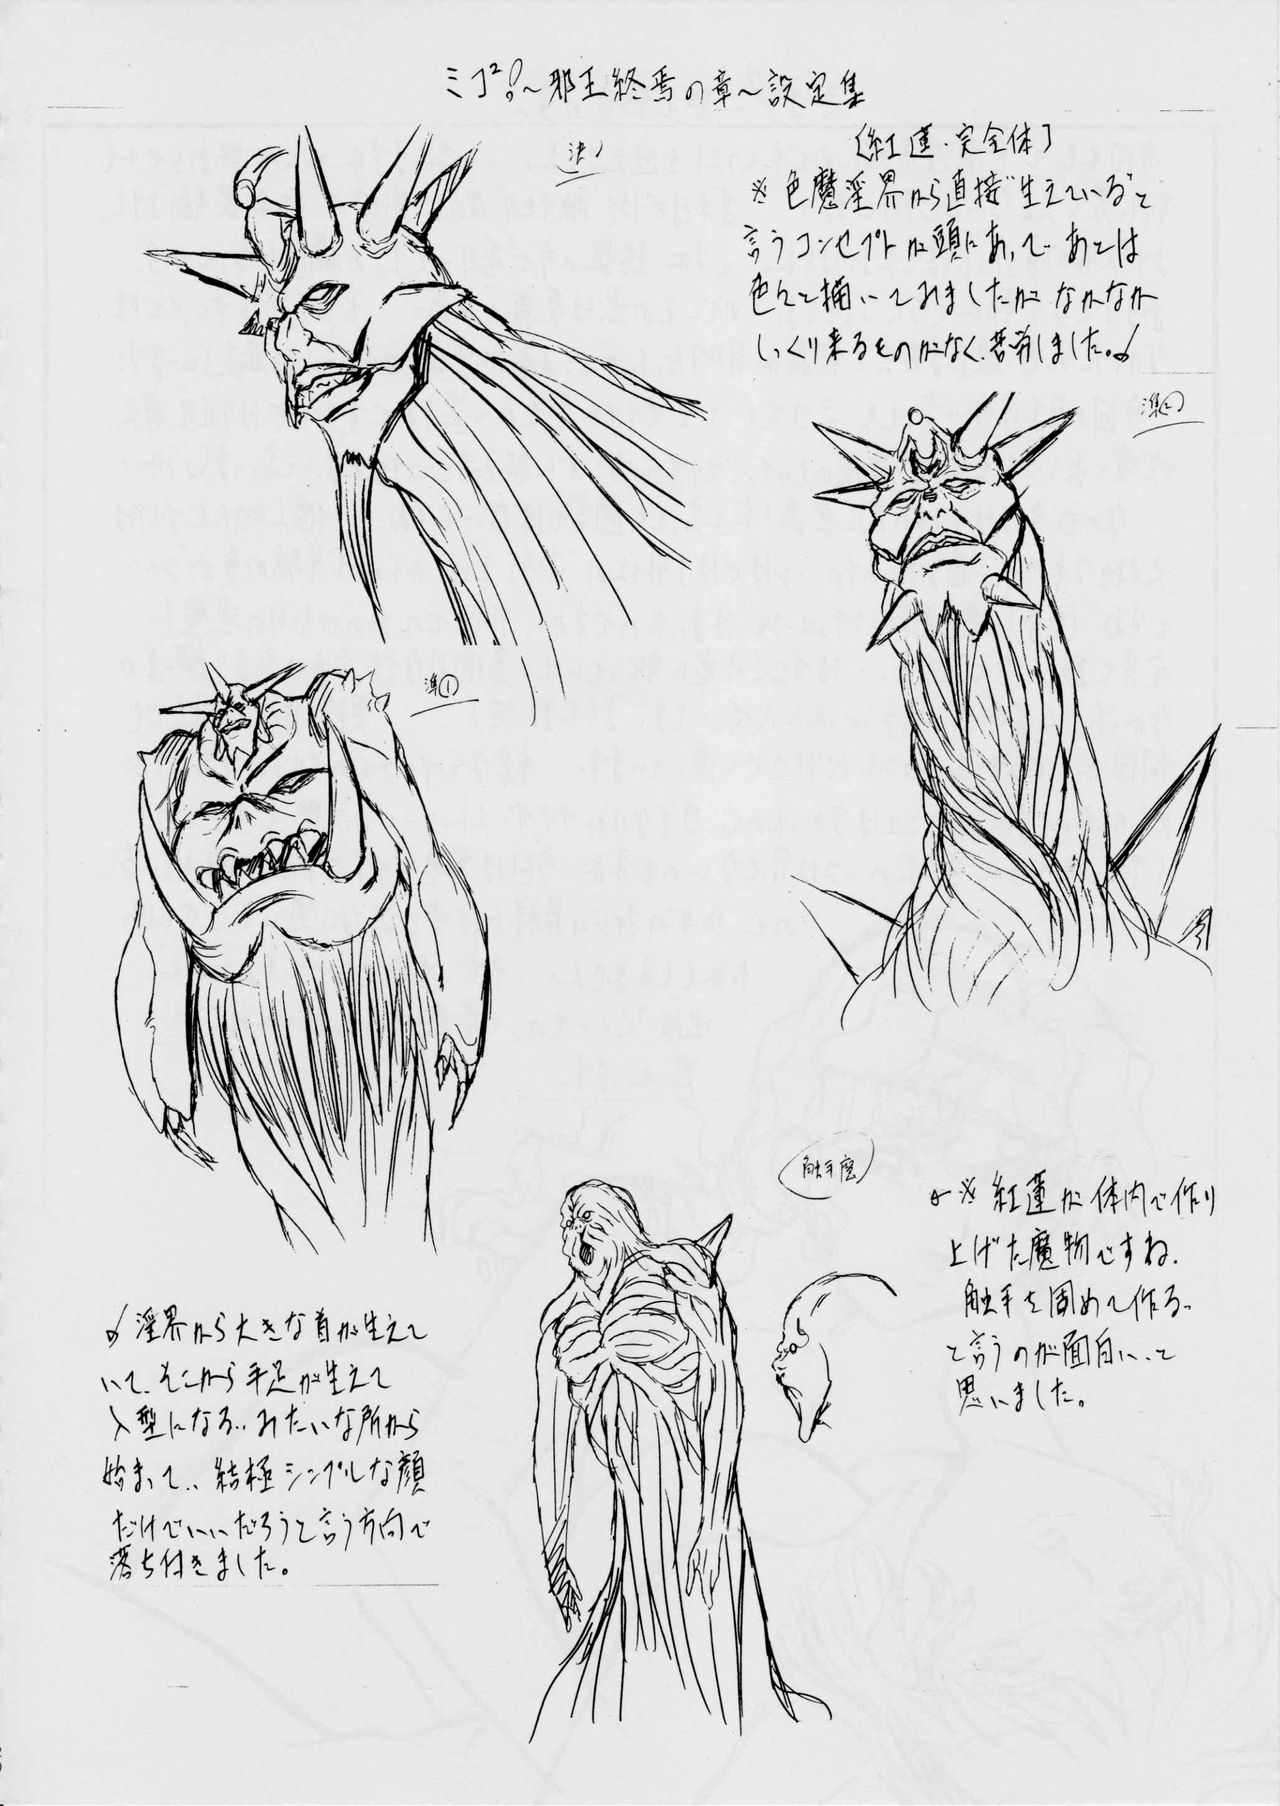 ミコ²!～邪王終焉の章～設定集
決!
〔紅蓮・完全体〕
※色魔淫界から直接"生えている"と
言うコンセプトが頭にあって、あとは
色々と描いてみましたが なかなか
しっくり来るものがなく、苦労しました。
準②
準①
触手魔
※紅蓮が体内で作り
上げた魔物ですね、
触手を固めて作る、
と言うのが面白い、と
思いました。
淫界から大きな首が生えて
いて、そこから手足が生えて
人型になる‥みたいな所から
始まって‥結極シンプルな顔
だけでいいだろうと言う方向で
落ち付きました。